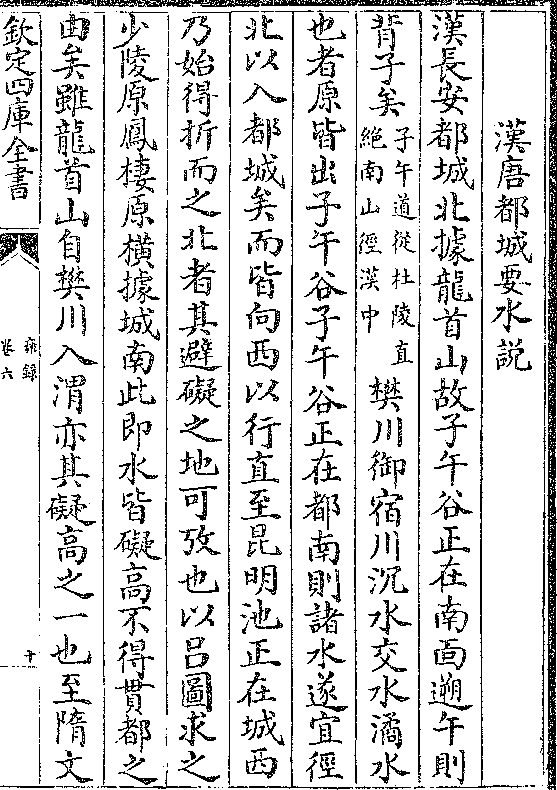 漢唐都城要水説
漢長安都城北據龍首山故子午谷正在南面遡午則
背子矣子午道從杜陵直絶南山徑漢中樊川御宿川沉水交水潏水
也者原皆出子午谷子午谷正在都南則諸水遂宜徑
北以入都城矣而皆向西以行直至昆明池正在城西
乃始得折而之北者其避礙之地可攷也以吕圖求之
少陵原鳳棲原橫據城南此即水皆礙高不得貫都之
由矣雖龍首山自樊川入渭亦其礙高之一也至隋文
欽定四庫全書
雍録
卷六
十